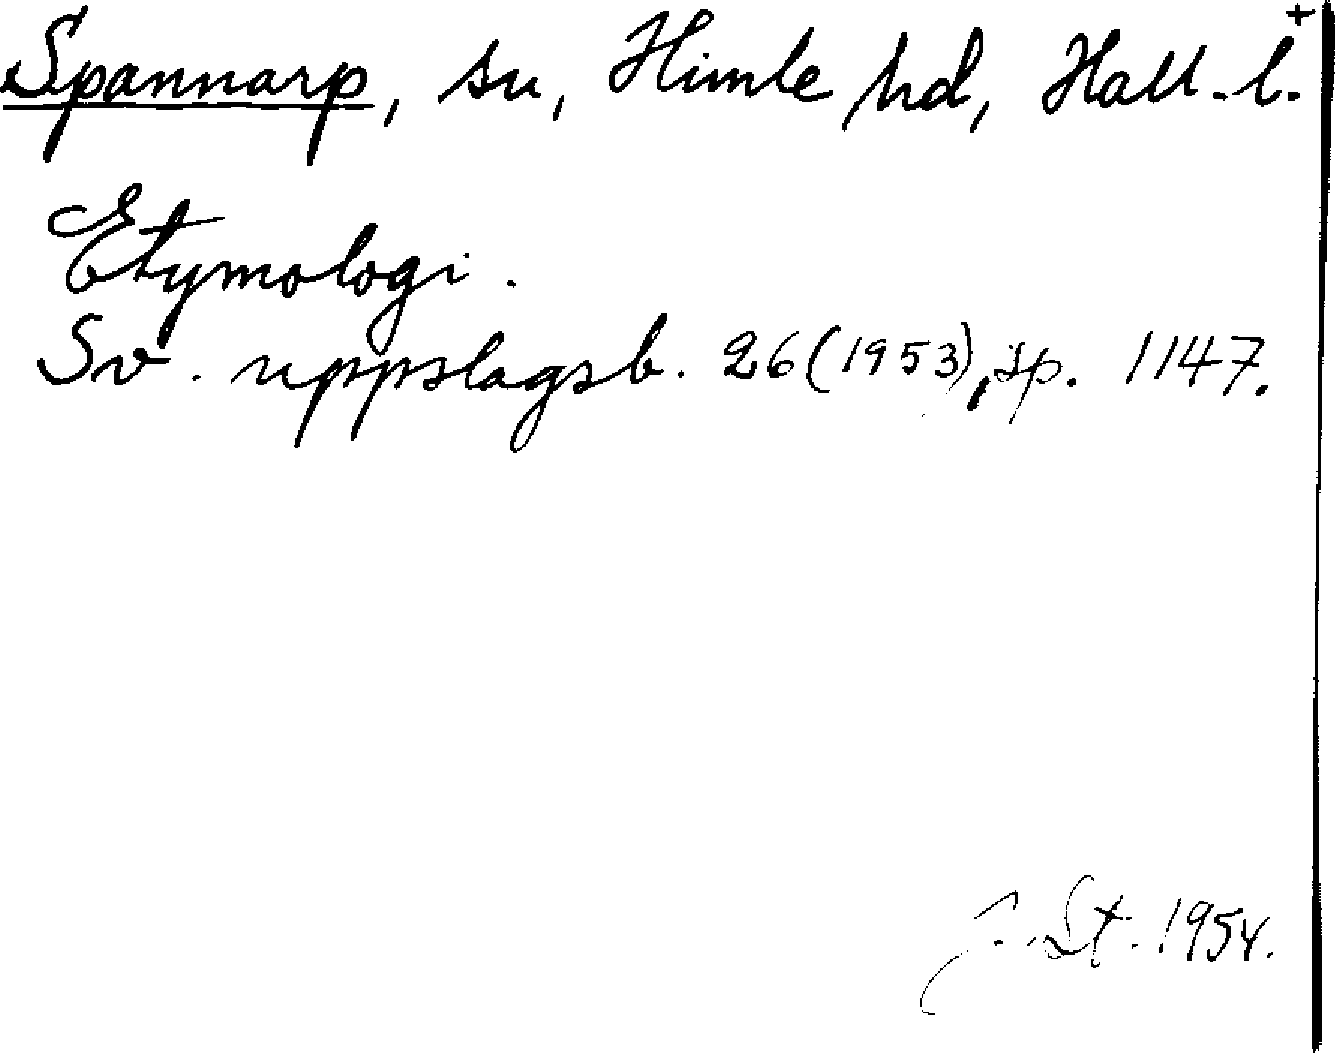 Spannarp, sn, Himle hd, Hall. l.+
Etymologi.
Sv. uppslagsb. 26(1953), sp. 1147.
J. St. 1954.